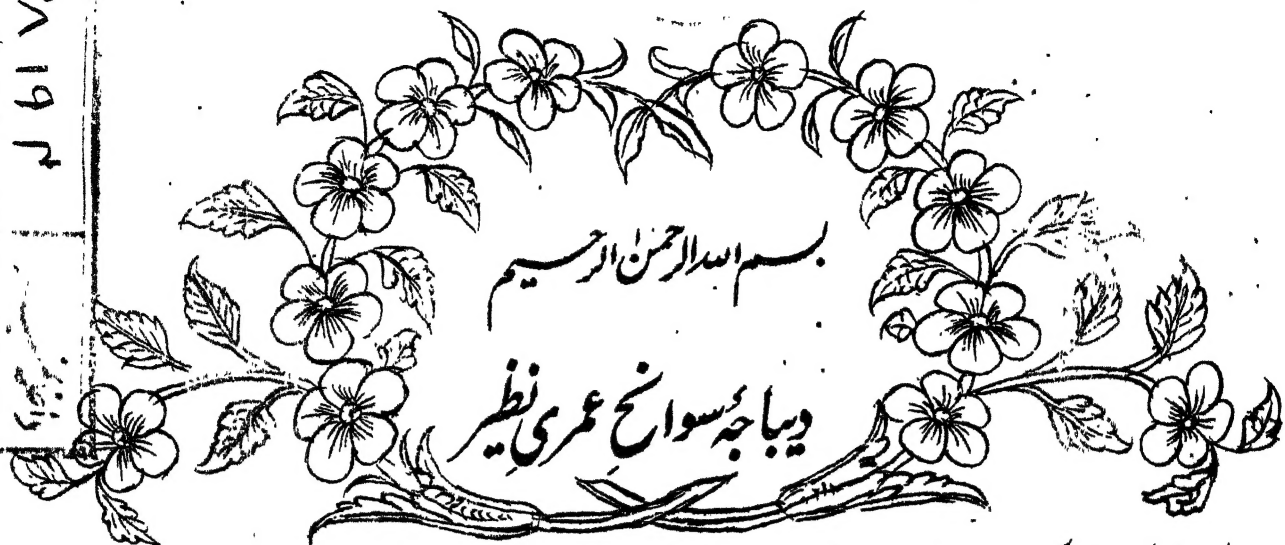 بسم اللہ الرحمٰن الرحیم
دیباچۂ سوانحِ عمریِ نظیر